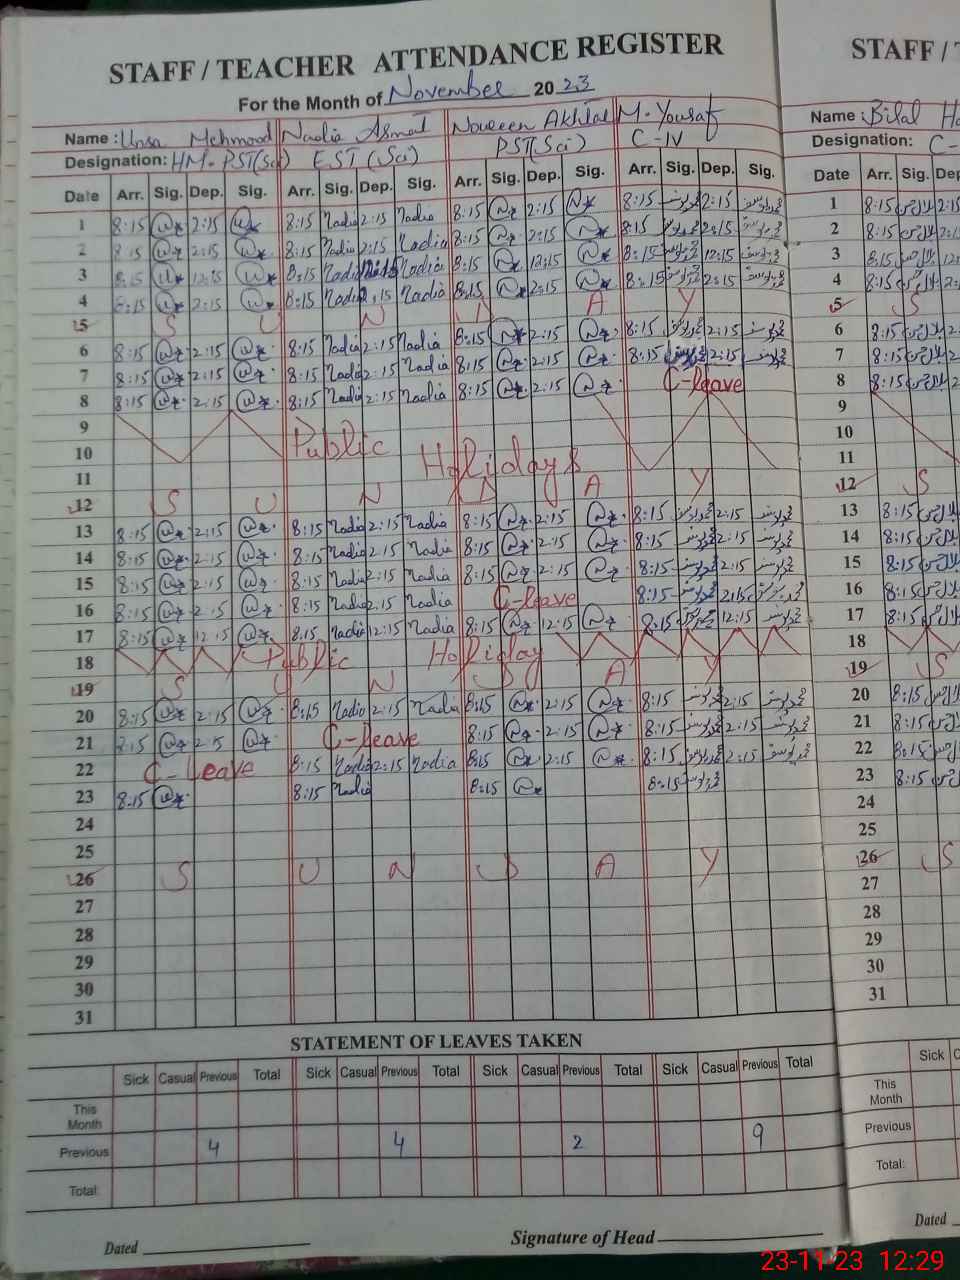 STAFF / TEACHER ATTENDANCE REGISTER STAFF /
For the Month of November 2023
Name : Unsa Mehmood Nadia Asmat Noureen Akhtar M. Yousaf Name : Bilal
Designation: HM. PST(Sci) EST (Sci) PST(Sci) C-IV Designation: C-
Date Arr. Sig. Dep. Sig. Arr. Sig. Dep. Sig. Arr. Sig. Dep. Sig. Arr. Sig. Dep. Sig. Date Arr. Sig. Dep
1 8:15 2:15 8:15 Nadia 2:15 Nadia 8:15 2:15 8:15 2:15 1 8:15
2 8:15 2:15 8:15 Nadia 2:15 Nadia 8:15 2:15 8:15 2:15 2 8:15
3 8:15 12:15 8:15 Nadia Nadia 8:15 12:15 8:15 12:15 3 8:15
4 8:15 2:15 8:15 Nadia 2:15 Nadia 8:15 2:15 8:15 2:15 4 8:15
5 S U N D A Y 5 S
6 8:15 2:15 8:15 Nadia 2:15 Nadia 8:15 2:15 8:15 2:15 6 8:15
7 8:15 2:15 8:15 Nadia 2:15 Nadia 8:15 2:15 8:15 2:15 7 8:15
8 8:15 2:15 8:15 Nadia 2:15 Nadia 8:15 2:15 C-leave 8 8:15
9 9
10 Public Holidays 10
11 11
12 S U N D A Y 12 S
13 8:15 2:15 8:15 Nadia 2:15 Nadia 8:15 2:15 8:15 2:15 13 8:15
14 8:15 2:15 8:15 Nadia 2:15 Nadia 8:15 2:15 8:15 2:15 14 8:15
15 8:15 2:15 8:15 Nadia 2:15 Nadia 8:15 2:15 8:15 2:15 15 8:15
16 8:15 2:15 8:15 Nadia 2:15 Nadia C-leave 8:15 2:15 16 8:15
17 8:15 12:15 8:15 Nadia 12:15 Nadia 8:15 12:15 8:15 12:15 17 8:15
18 Public Holiday 18
19 S U N D A Y 19 S
20 8:15 2:15 8:15 Nadia 2:15 Nadia 8:15 2:15 8:15 2:15 20 8:15
21 8:15 2:15 C-leave 8:15 2:15 8:15 2:15 21 8:15
22 C-Leave 8:15 Nadia 2:15 Nadia 8:15 2:15 8:15 2:15 22 8:15
23 8:15 8:15 Nadia 8:15 8:15 23 8:15
24 24
25 25
26 S U N D A Y 26 S
27 27
28 28
29 29
30 30
31 31
STATEMENT OF LEAVES TAKEN
Sick Casual Previous Total Sick Casual Previous Total Sick Casual Previous Total Sick Casual Previous Total Sick C
This Month This Month
Previous 4 4 2 9 Previous
Total: Total:
Dated Signature of Head Dated
23-11-23 12:29